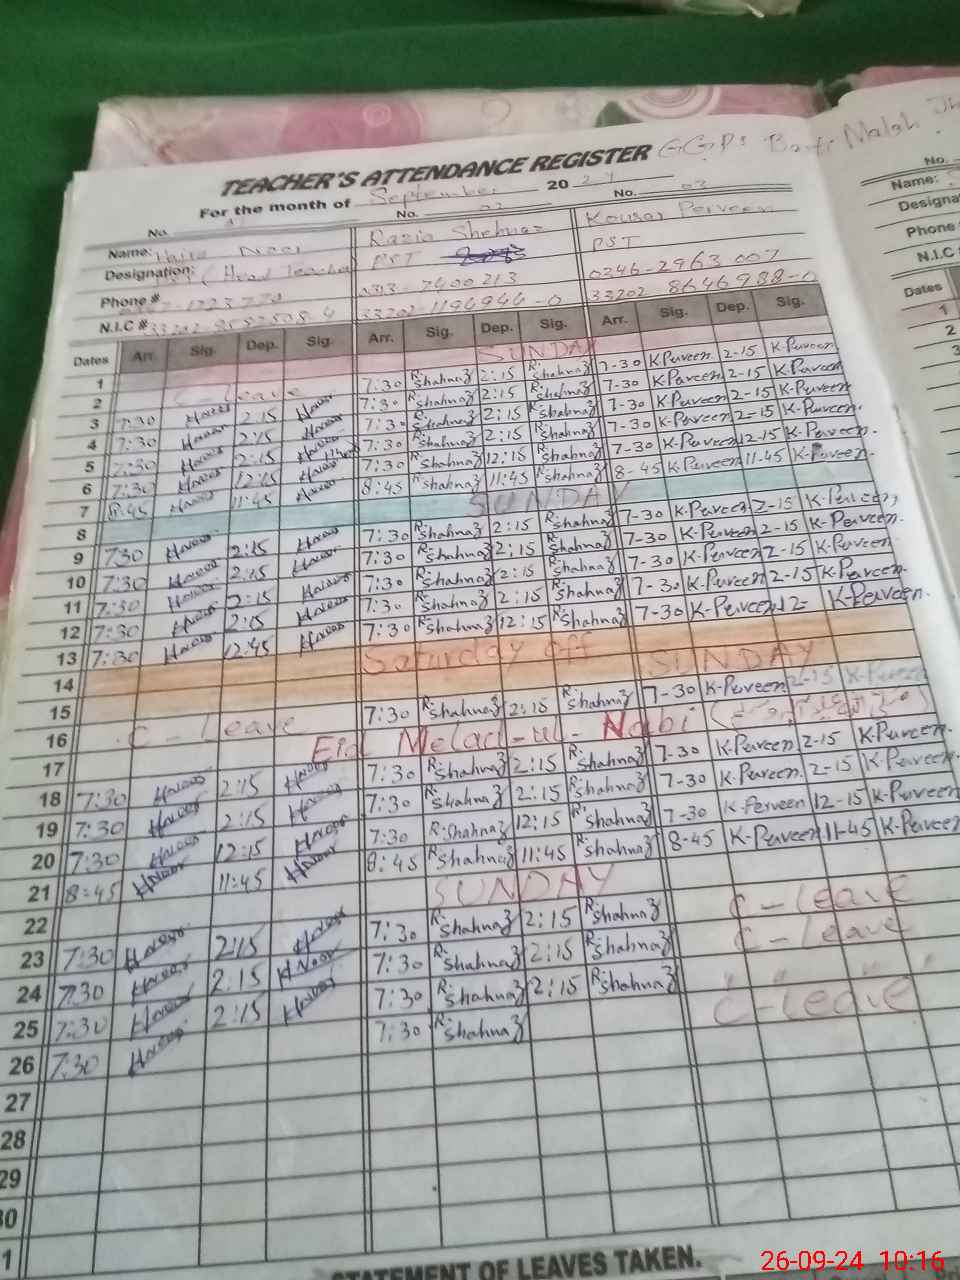 TEACHER'S ATTENDANCE REGISTER G.G.P.S
For the month of September 2024
No. No. 02 No. 03
Name: Hajra Noor Razia Shehnaz Kousar Perveen
Designation: (Head Teacher PST PST
Phone # 0313-7400213 0346-2963007
N.I.C # 33202-1194944-0 33202 8646988-0
Dates Arr. Sig. Dep. Sig. Arr. Sig. Dep. Sig. Arr. Sig. Dep. Sig.
1 SUNDAY
2 C-Leave 7:30 R.Shahnaz 2:15 R.Shahnaz 7-30 K.Perveen 2-15 K.Perveen
3 7:30 HNoor 2:15 HNoor 7:30 R.Shahnaz 2:15 R.Shahnaz 7-30 K.Perveen 2-15 K.Perveen
4 7:30 HNoor 2:15 HNoor 7:30 R.Shahnaz 2:15 R.Shahnaz 7-30 K.Perveen 2-15 K.Perveen
5 7:30 HNoor 2:15 HNoor 7:30 R.Shahnaz 2:15 R.Shahnaz 7-30 K.Perveen 2-15 K.Perveen
6 7:30 HNoor 12:15 HNoor 7:30 R.Shahnaz 12:15 R.Shahnaz 7-30 K.Perveen 12-15 K.Perveen.
7 8:45 HNoor 11:45 HNoor 8:45 R.Shahnaz 11:45 R.Shahnaz 8-45 K.Perveen 11-45 K.Perveen.
8 SUNDAY
9 7:30 HNoor 2:15 HNoor 7:30 R.Shahnaz 2:15 R.Shahnaz 7-30 K.Perveen 2-15 K.Perveen
10 7:30 HNoor 2:15 HNoor 7:30 R.Shahnaz 2:15 R.Shahnaz 7-30 K.Perveen 2-15 K.Perveen.
11 7:30 HNoor 2:15 HNoor 7:30 R.Shahnaz 2:15 R.Shahnaz 7-30 K.Perveen 2-15 K.Perveen.
12 7:30 HNoor 2:15 HNoor 7:30 R.Shahnaz 2:15 R.Shahnaz 7-30 K.Perveen 2-15 K.Perveen.
13 7:30 HNoor 12:45 HNoor 7:30 R.Shahnaz 12:15 R.Shahnaz 7-30 K.Perveen 12- K.Perveen.
14 Saturday off
15 SUNDAY
16 C-Leave 7:30 R.Shahnaz 2:15 R.Shahnaz 7-30 K.Perveen 2-15 K.Perveen
17 Eid Melad-ul-Nabi
18 7:30 HNoor 2:15 HNoor 7:30 R.Shahnaz 2:15 R.Shahnaz 7-30 K.Perveen 2-15 K.Perveen
19 7:30 HNoor 2:15 HNoor 7:30 R.Shahnaz 2:15 R.Shahnaz 7-30 K.Perveen 2-15 K.Perveen
20 7:30 HNoor 12:15 HNoor 7:30 R.Shahnaz 12:15 R.Shahnaz 7-30 K.Perveen 12-15 K.Perveen
21 8:45 HNoor 11:45 HNoor 8:45 R.Shahnaz 11:45 R.Shahnaz 8-45 K.Perveen 11-45 K.Perveen
22 SUNDAY
23 7:30 HNoor 2:15 HNoor 7:30 R.Shahnaz 2:15 R.Shahnaz C-Leave
24 7:30 HNoor 2:15 HNoor 7:30 R.Shahnaz 2:15 R.Shahnaz C-Leave
25 7:30 HNoor 2:15 HNoor 7:30 R.Shahnaz 2:15 R.Shahnaz " " " "
26 7:30 HNoor 7:30 R.Shahnaz C-Leave
27
28
29
30
31
STATEMENT OF LEAVES TAKEN.
No.
Name:
Designa
Phone
N.I.C
Dates
1
2
3
26-09-24 10:16